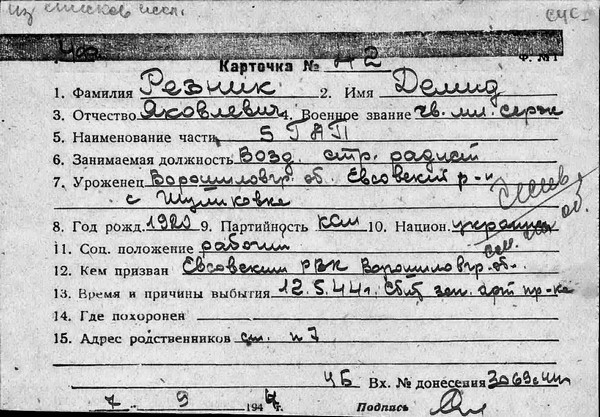 из списков искл.
Карточка № 42 Ф. № 1
1. Фамилия Резник 2. Имя Демид
3. Отчество Яковлевич 4. Военное звание гв. мл. серж
5. Наименование части 5 ГАП
6. Занимаемая должность Возд. стр. радист
7. Уроженец Ворошиловгр. об. Евсовский р-н
с Шуликовка
8. Год рожд. 1920 9. Партийность КСМ 10. Национ. украинец
11. Соц. положение рабочий
12. Кем призван Евсовский РВК Ворошиловгр. об.
13. Время и причины выбытия 12.5.44г. Сбит зен. арт пр-ка
14. Где похоронен
15. Адрес родственников см. п 7
ЧБ Вх. № донесения
7 9 1944 г. Подпись